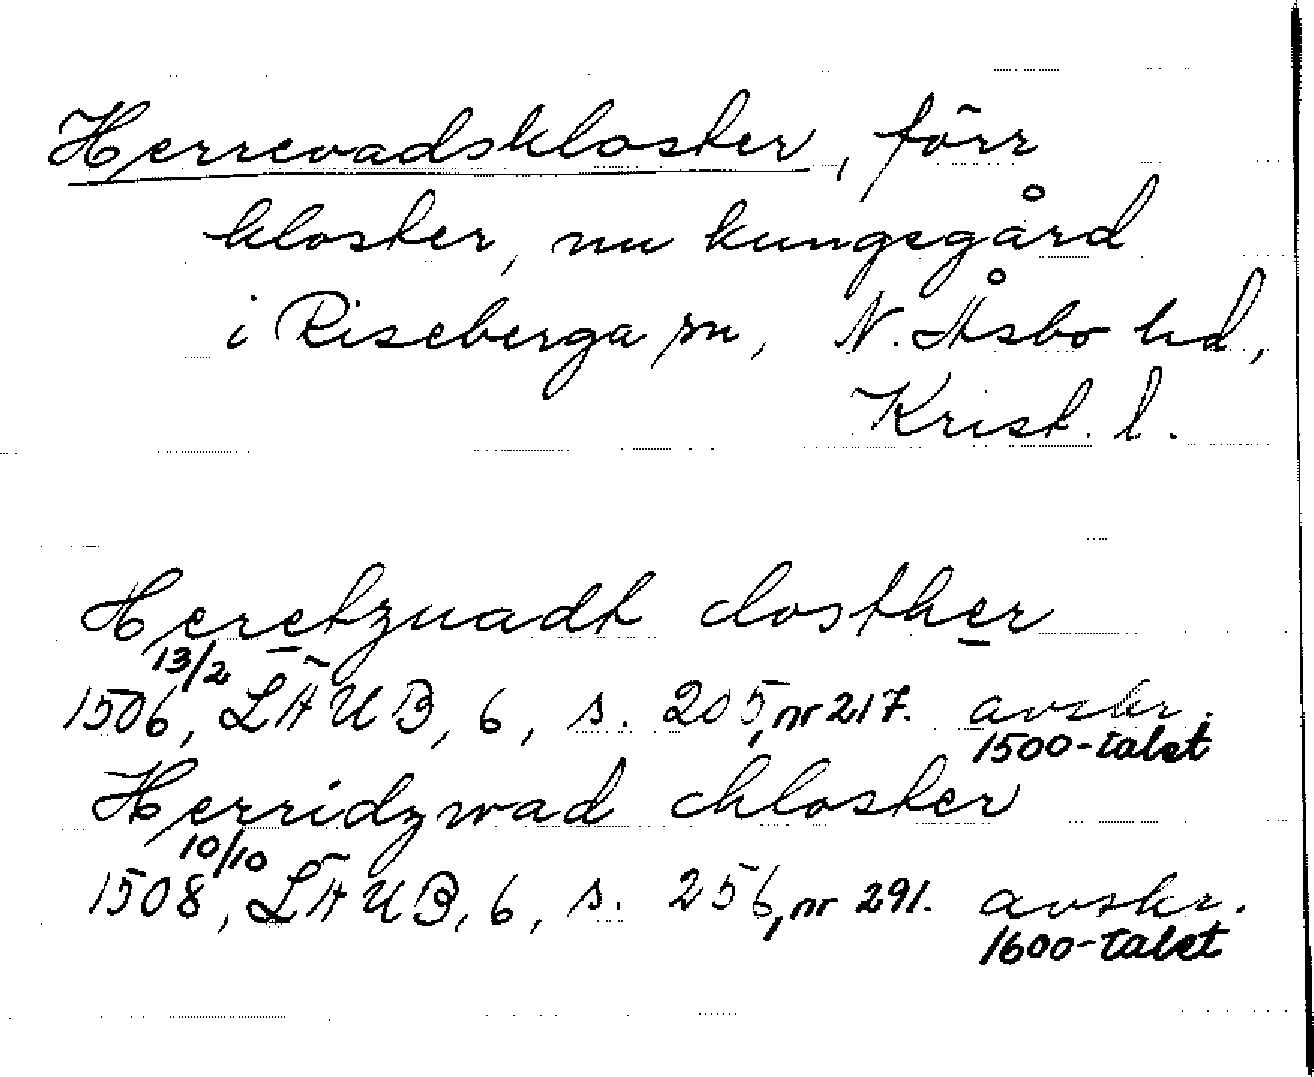 Herrevadskloster, förr
kloster, nu kungsgård
i Riseberga sn, N. Åsbo hd,
Krist. l.
Heretzuadt closther
13/2
1506, LÄUB, 6, s. 205, nr 217. avskr.
1500-talet
Herridzwad chloster
10/10
1508, LÄUB, 6, s. 256, nr 291. avskr.
1600-talet